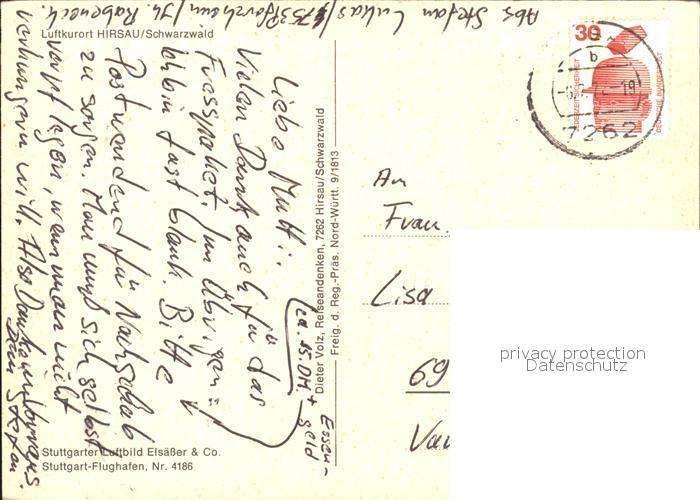 Abs. Stefan Lukas / 753 Pforzheim / Jh. Rabeneck
Luftkurort HIRSAU/Schwarzwald
Liebe Mutti:
Vielen Dank auch für das
Fresspaket. Im Übrigen:
Ich bin fast blank. Bitte
Postwendend für Nachschub
zu sorgen. Man muß sich selbst
verpflegen, wenn man nicht
verhungern will. Also Danke im Voraus
Dein Stefan.
(ca. 15.DM. +
Essen-
geld
Stuttgarter Luftbild Elsäßer & Co.
Stuttgart-Flughafen, Nr. 4186
Dieter Volz, Reiseandenken, 7262 Hirsau/Schwarzwald
Freig. d. Reg.-Präs. Nord-Württ. 9/1813
30
JEDERZEIT SICHERHEIT
DEUTSCHE BUNDESPOST
b
-19
7262
An
Frau
Lisa
69
privacy protection
Datenschutz